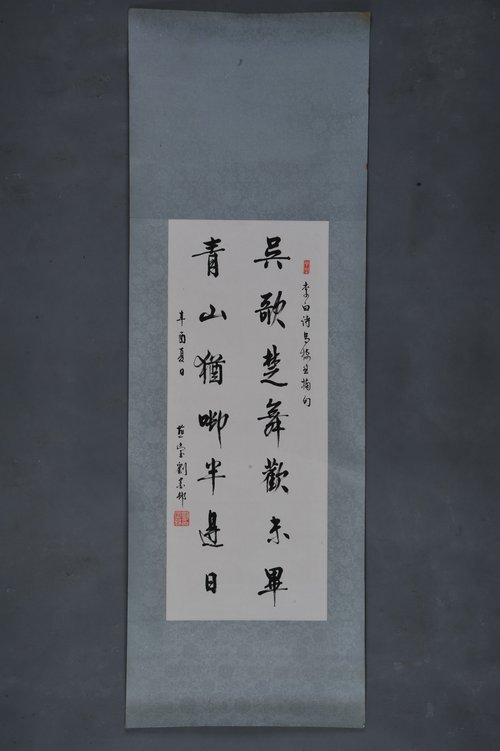 李白詩烏棲曲摘句
吳歌楚舞歡未畢
青山猶啣半邊日
辛酉夏日
劉